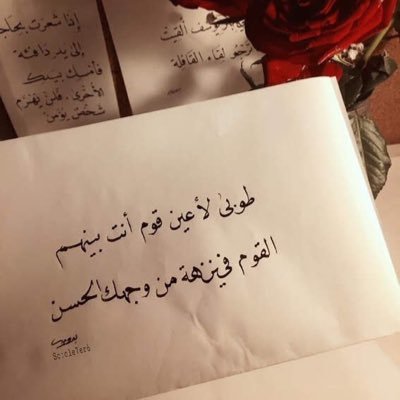 إذا شعرت بحاجة
إلى يد دافئة
فأمسك بيدك
الأخرى، فلن يهزم
شخص يؤمن
يوسف ألقيت
ترجو لقاء القافلة
طوبى لأعين قوم أنت بينهم
القوم في نزهة من وجهك الحسن